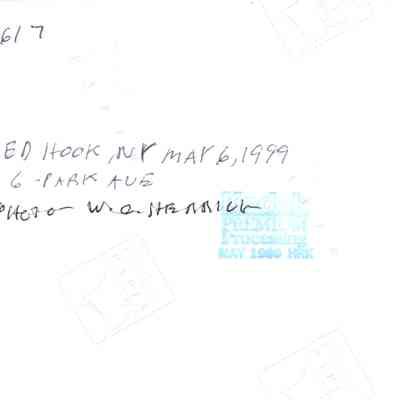 617
ED HOOK, NY MAY 6, 1999
6 - PARK AVE
PHOTO - W. C. SHERRICK
PREMIUM
Processing
MAY 1999 HRK